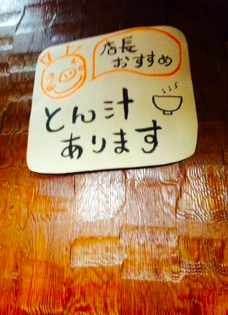 店長
おすすめ
とん汁
あります